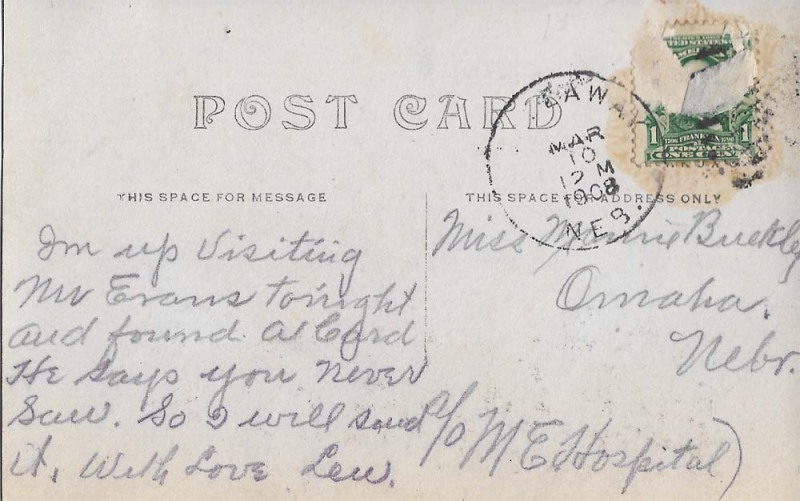 POST CARD
THIS SPACE FOR MESSAGE
THIS SPACE FOR ADDRESS ONLY
AWAY
MAR
10
12 M
1908
NEB.
UNITED STATES
1 FRANKLIN 1
POSTAGE
ONE CENT
Im up Visiting
Mr Evans tonight
and found a Card
He says you never
Saw. So I will send
it, With Love Lew.
Miss Mamie Buckley
Omaha.
Nebr.
c/o M E Hospital)